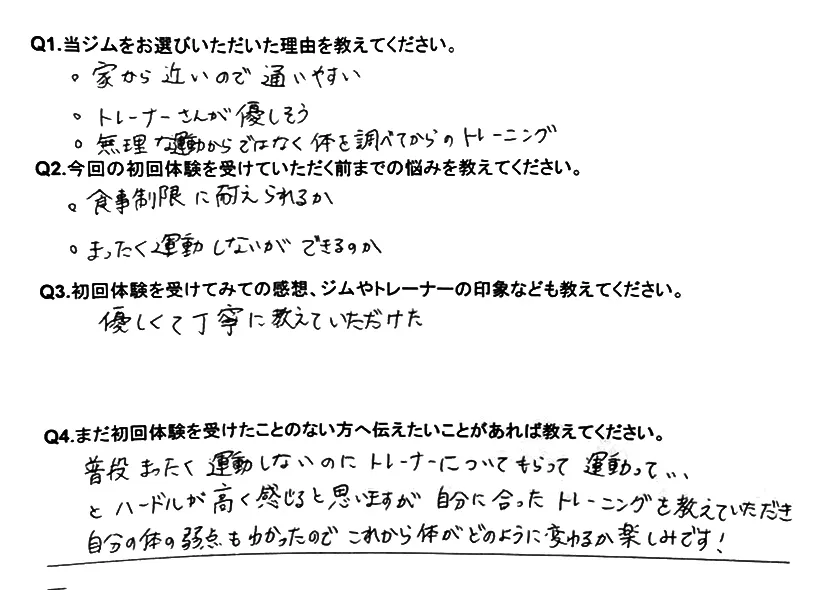 Q1.当ジムをお選びいただいた理由を教えてください。
○ 家から近いので通いやすい
○ トレーナーさんが優しそう
○ 無理な運動からではなく体を調べてからのトレーニング
Q2.今回の初回体験を受けていただく前までの悩みを教えてください。
○ 食事制限に耐えられるか
○ まったく運動しないができるのか
Q3.初回体験を受けてみての感想、ジムやトレーナーの印象なども教えてください。
優しくて丁寧に教えていただけた
Q4.まだ初回体験を受けたことのない方へ伝えたいことがあれば教えてください。
普段まったく運動しないのにトレーナーについてもらって運動って...
とハードルが高く感じると思いますが自分に合ったトレーニングを教えていただき
自分の体の弱点もわかったのでこれから体がどのように変わるか楽しみです!